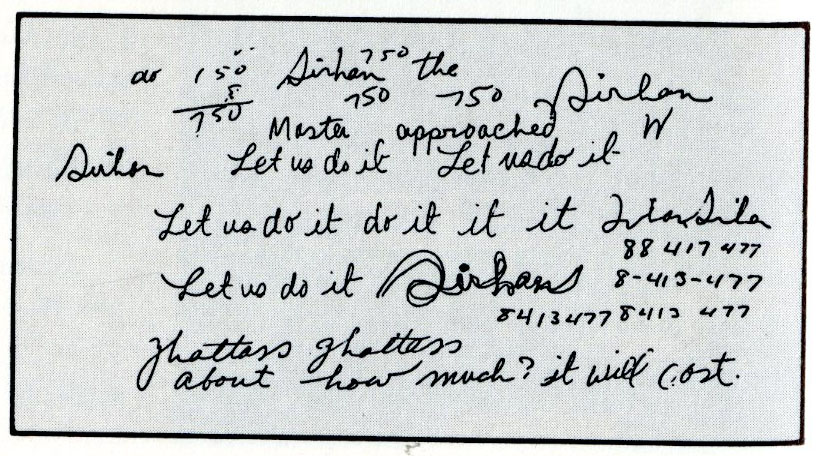 ar 150 Sirhan 750 the
5
750 750 750 Sirhan
Master approached W
Sirhan Let us do it Let us do it
Let us do it do it it it
88 417 477
Let us do it Sirhan 8-413-477
8413477 8413 477
Ghattass Ghattass
about how much? it will cost.